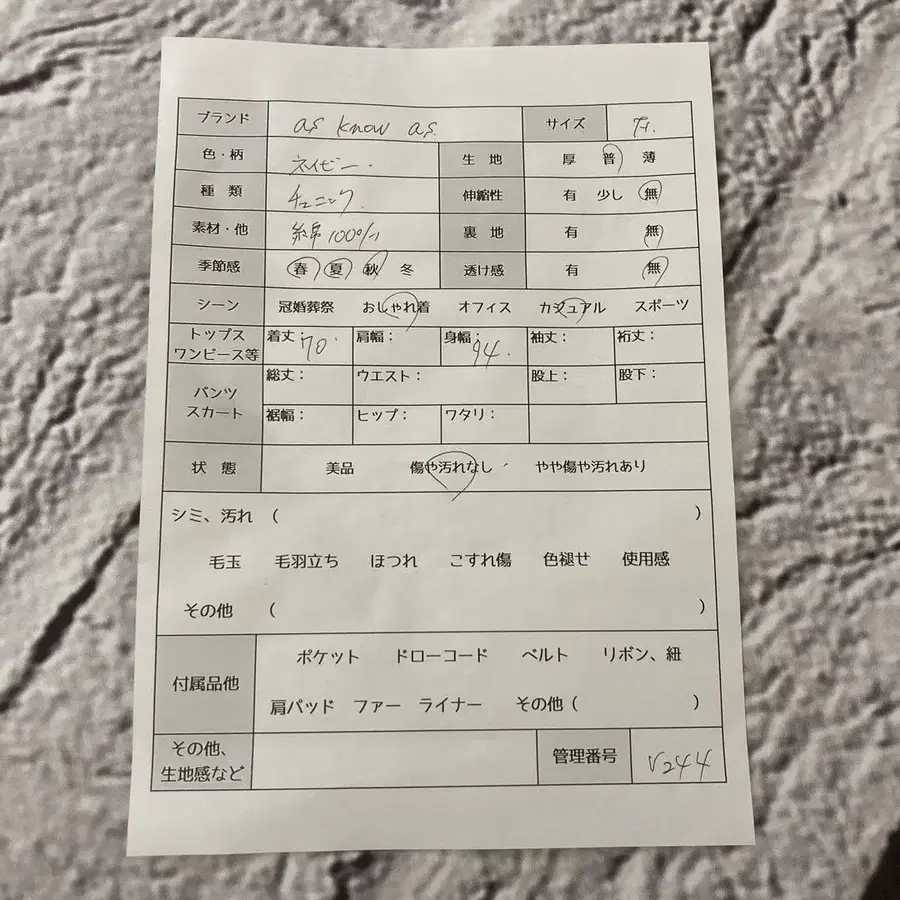 ブランド as know as サイズ
色・柄 ネイビー. 生地 厚 普 薄
種類 チュニック. 伸縮性 有 少し 無
素材・他 綿100% 裏地 有 無
季節感 春 夏 秋 冬 透け感 有 無
シーン 冠婚葬祭 おしゃれ着 オフィス カジュアル スポーツ
トップス
ワンピース等 着丈：70 肩幅： 身幅：94. 袖丈： 裄丈：
パンツ
スカート 総丈： ウエスト： 股上： 股下：
裾幅： ヒップ： ワタリ：
状態 美品 傷や汚れなし やや傷や汚れあり
シミ、汚れ （ ）
毛玉 毛羽立ち ほつれ こすれ傷 色褪せ 使用感
その他 （ ）
付属品他 ポケット ドローコード ベルト リボン、紐
肩パッド ファー ライナー その他（ ）
その他、
生地感など 管理番号 V244